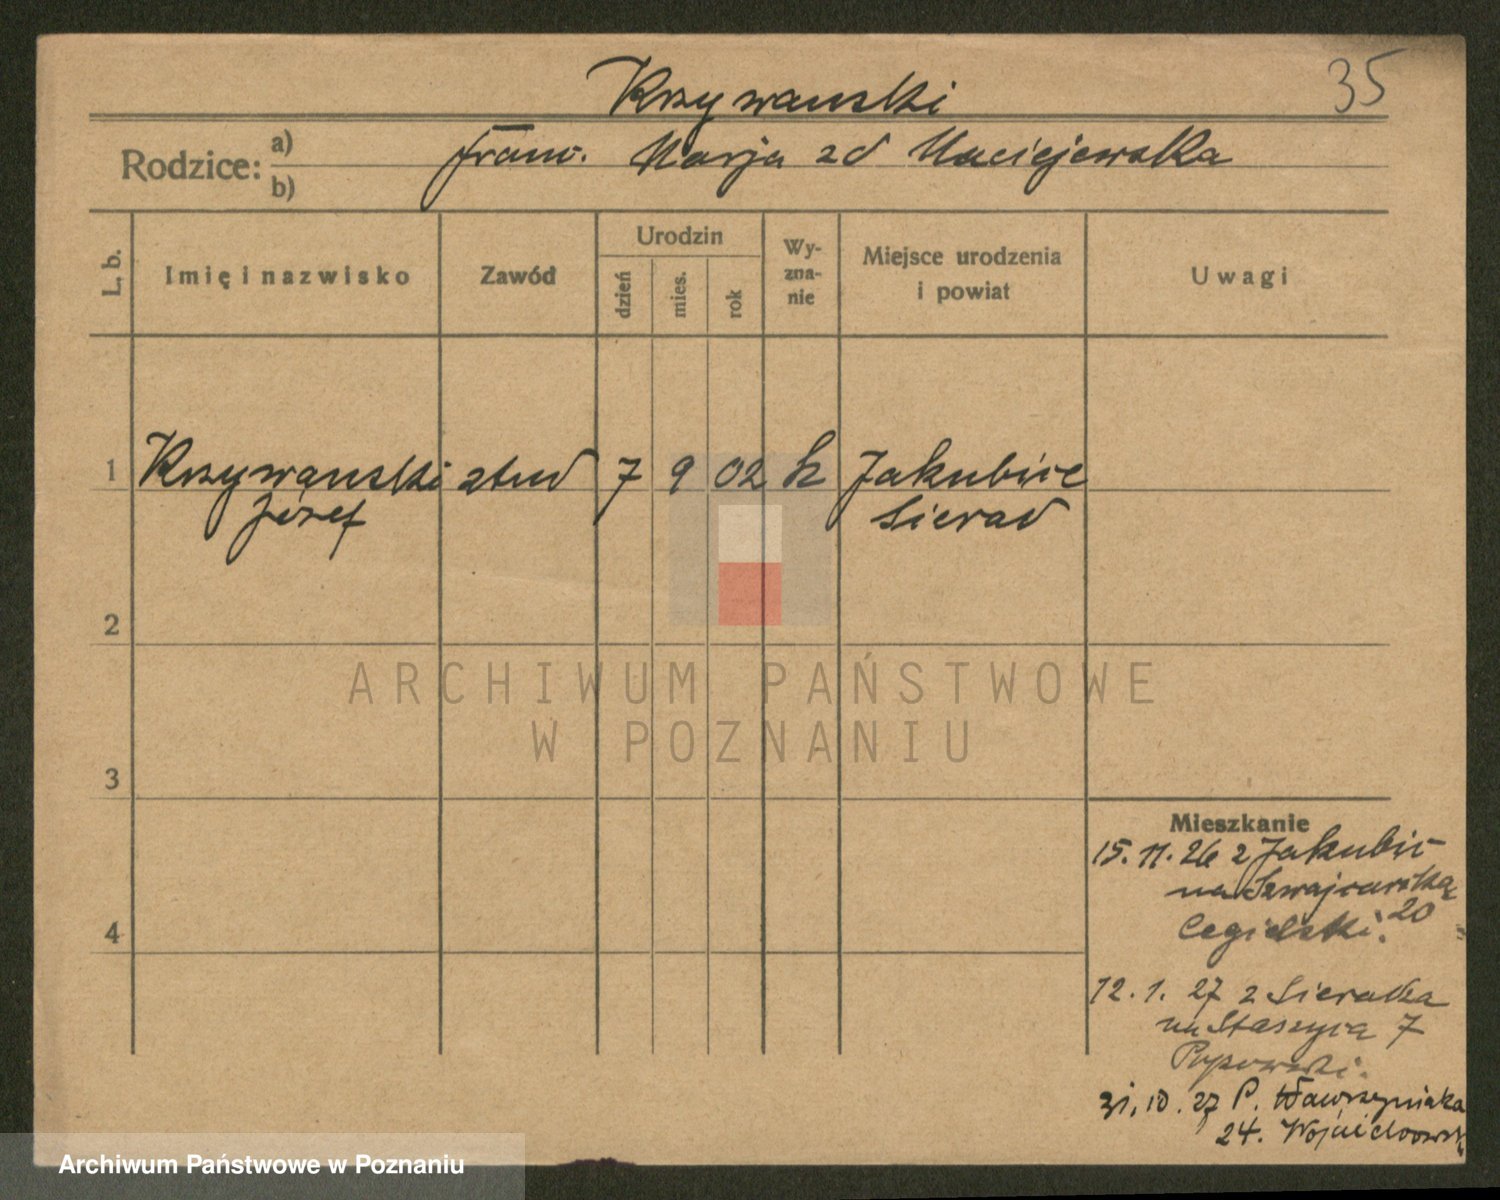 35
Krzywanski
Rodzice: a) b)
Franc. Marja zd Maciejewska
L. b.
Imię i nazwisko
Zawód
Urodzin
dzień
mies.
rok
Wy-
zna-
nie
Miejsce urodzenia
i powiat
Uwagi
1 Krzywanski stud 7 9 02 k Jakubice
Józef Sierad
2
3
4
ARCHIWUM PAŃSTWOWE
W POZNANIU
Mieszkanie
15. 11. 26 z Jakubic
na Szwajcarską
Cegielski. 20
12. 1. 27 z Sieradza
na Staszyca 7
31. 10. 27 P. Wawrzyniaka
24. Wojciechowski
Archiwum Państwowe w Poznaniu